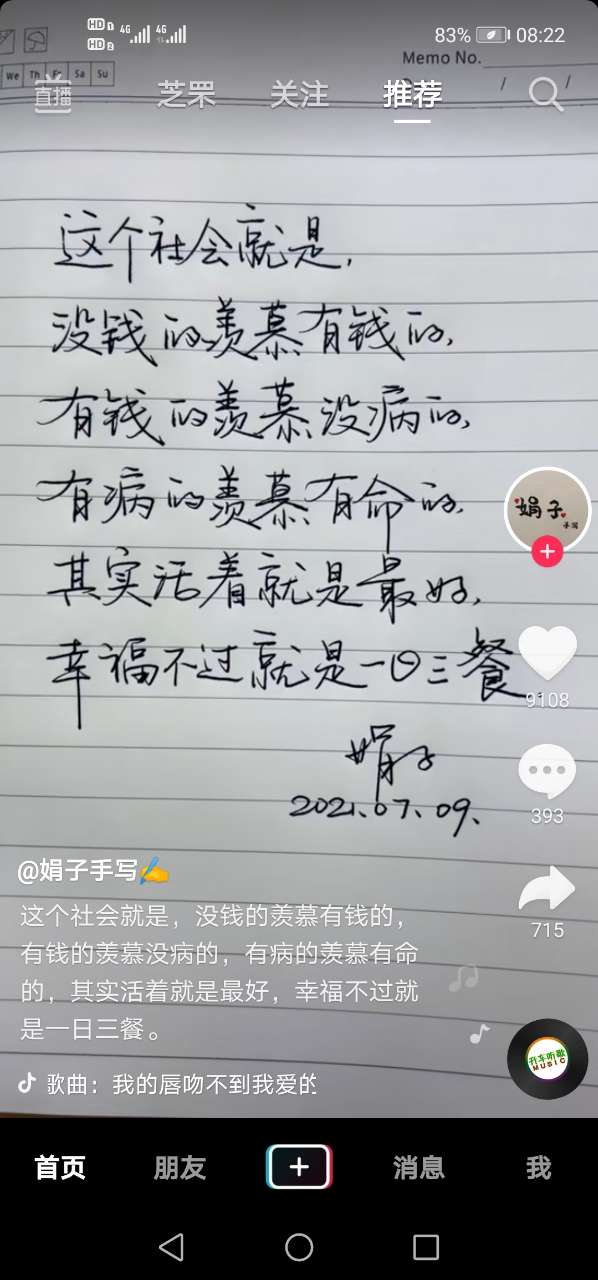 HD 1 4G 4G
HD 2
83% 08:22
Memo No.
We Th Fr Sa Su
直播 芝罘 关注 推荐
这个社会就是,
没钱的羡慕有钱的,
有钱的羡慕没病的,
有病的羡慕有命的.
其实活着就是最好,
幸福不过就是一日三餐.
娟子
2021.07.09.
娟子
手写
9108
393
715
@娟子手写✍
这个社会就是，没钱的羡慕有钱的，
有钱的羡慕没病的，有病的羡慕有命
的，其实活着就是最好，幸福不过就
是一日三餐。
歌曲：我的唇吻不到我爱的
开车听歌
MUSIC
首页 朋友 消息 我